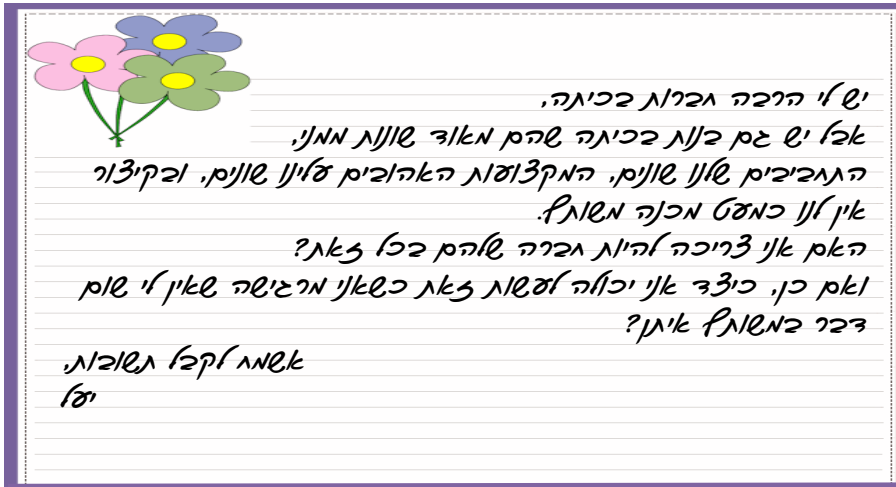 יש לי הרבה חברות בכיתה,
אבל יש גם בנות בכיתה שהם מאוד שונות ממני,
התחביבים שלנו שונים, המקצועות האהובים עלינו שונים, ובקיצור
אין לנו כמעט מכנה משותף.
האם אני צריכה להיות חברה שלהם בכל זאת?
ואם כן, כיצד אני יכולה לעשות זאת כשאני מרגישה שאין לי שום
דבר במשותף איתן?
אשמח לקבל תשובות,
יעל